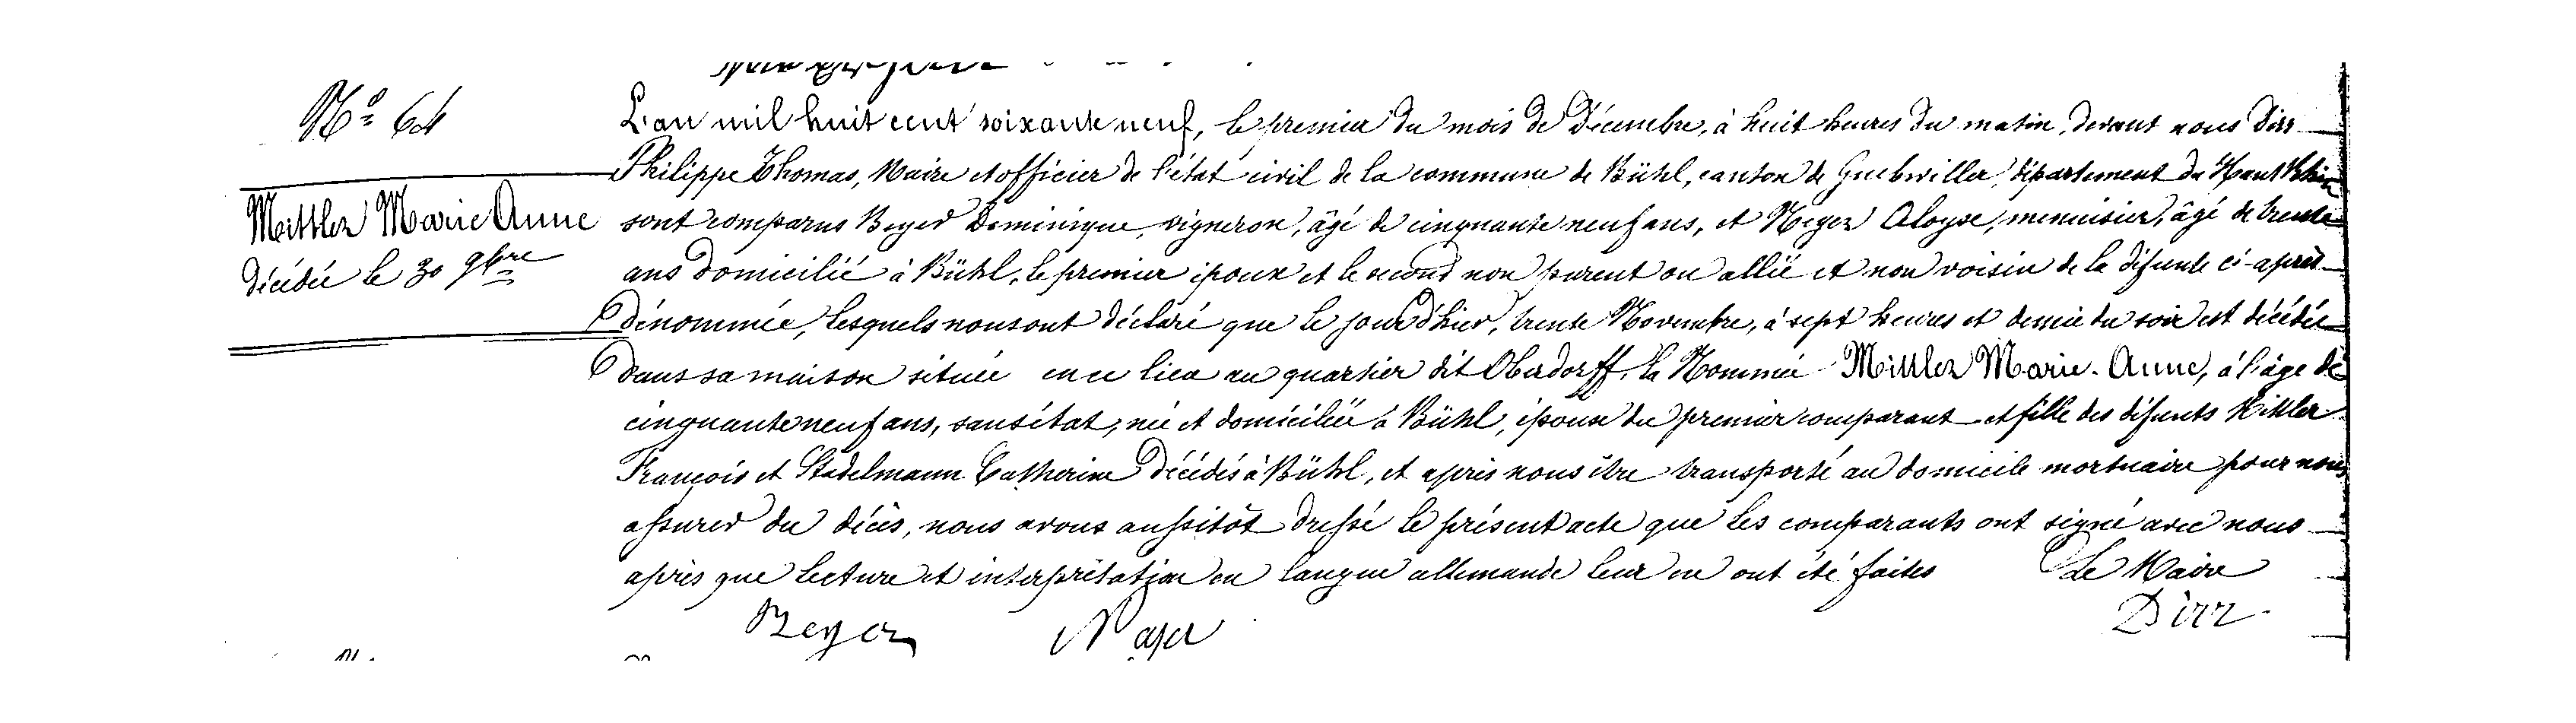 N° 64
Mittler Marie Anne
décédée le 30 9bre
L'an mil huit cent soixante neuf, le premier du mois de Décembre, à huit heures du matin, devant nous Dirr
Philippe Thomas, Maire et officier de l'état civil de la commune de Bühl, canton de Guebwiller, département du Haut Rhin
sont comparus Beyer Dominique, vigneron, âgé de cinquante neuf ans, et Meyer Aloyse, menuisier, âgé de trente
ans domicilié à Bühl, le premier époux et le second non parent ou allié et non voisin de la défunte ci-après
dénommée, lesquels nous ont déclaré que le jour d'hier, trente Novembre, à sept heures et demie du soir est décédée
dans sa maison située en ce lieu au quartier dit Oberdorff, la Nommée Mittler Marie-Anne, à l'âge de
cinquante neuf ans, sans état, née et domiciliée à Bühl, épouse du premier comparant et fille des défunts Mittler
François et Stadelmann Catherine décédés à Bühl, et après nous être transporté au domicile mortuaire pour nous
assurer du décès, nous avons aussitôt dressé le présent acte que les comparants ont signé avec nous
après que lecture et interprétation en langue allemande leur en ont été faites Le Maire
Beyer Mayer Dirr